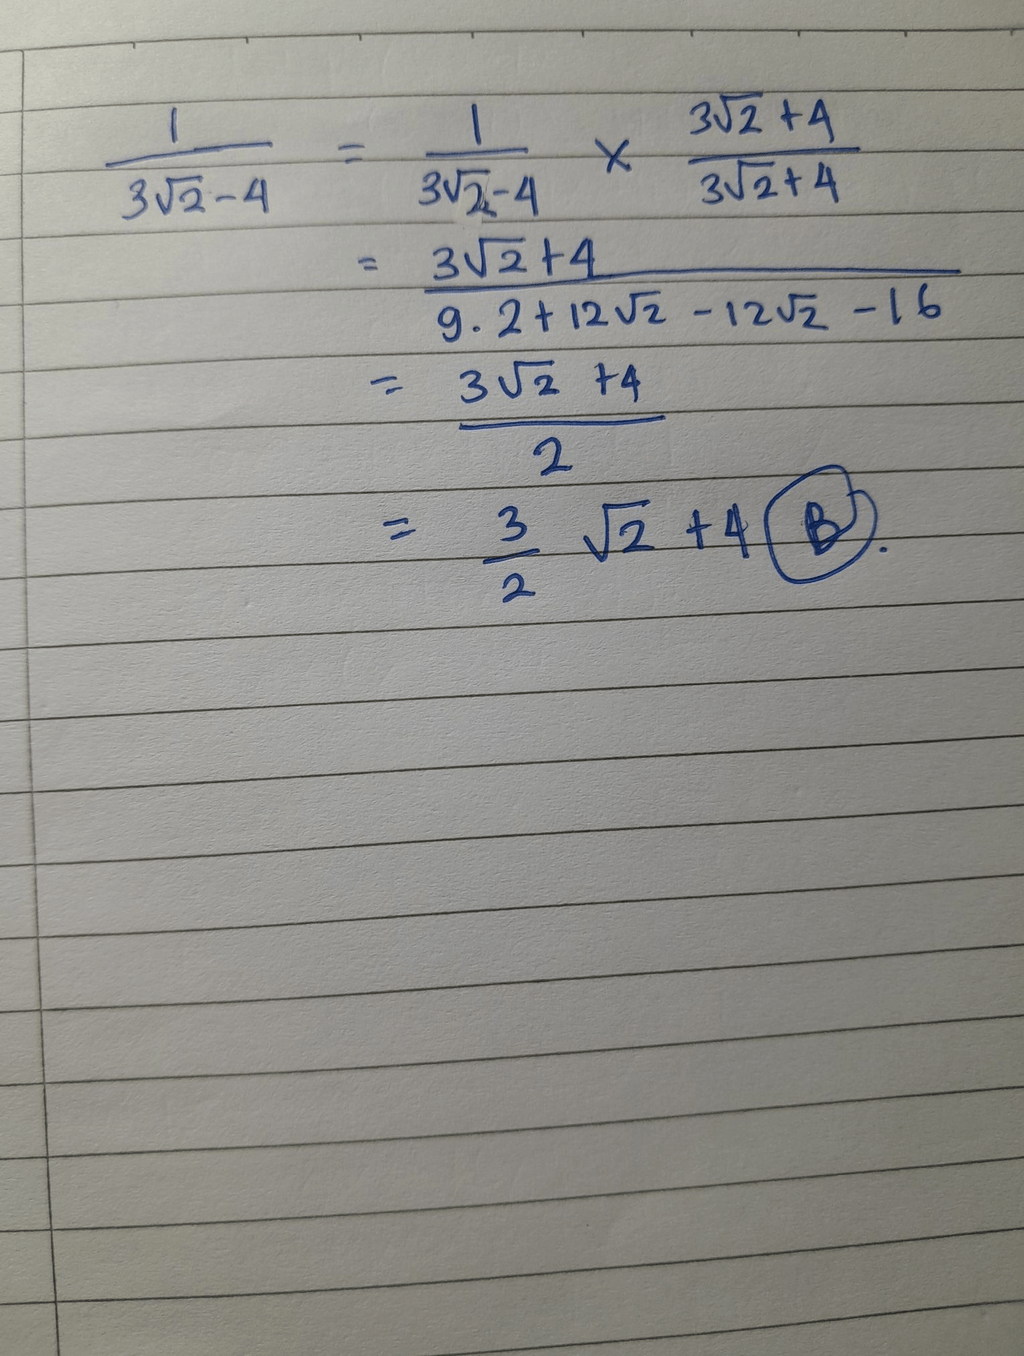 1/(3√2-4) = 1/(3√2-4) × (3√2+4)/(3√2+4)
= (3√2+4)/(9.2+12√2-12√2-16)
= (3√2+4)/2
= 3/2 √2+4 B.